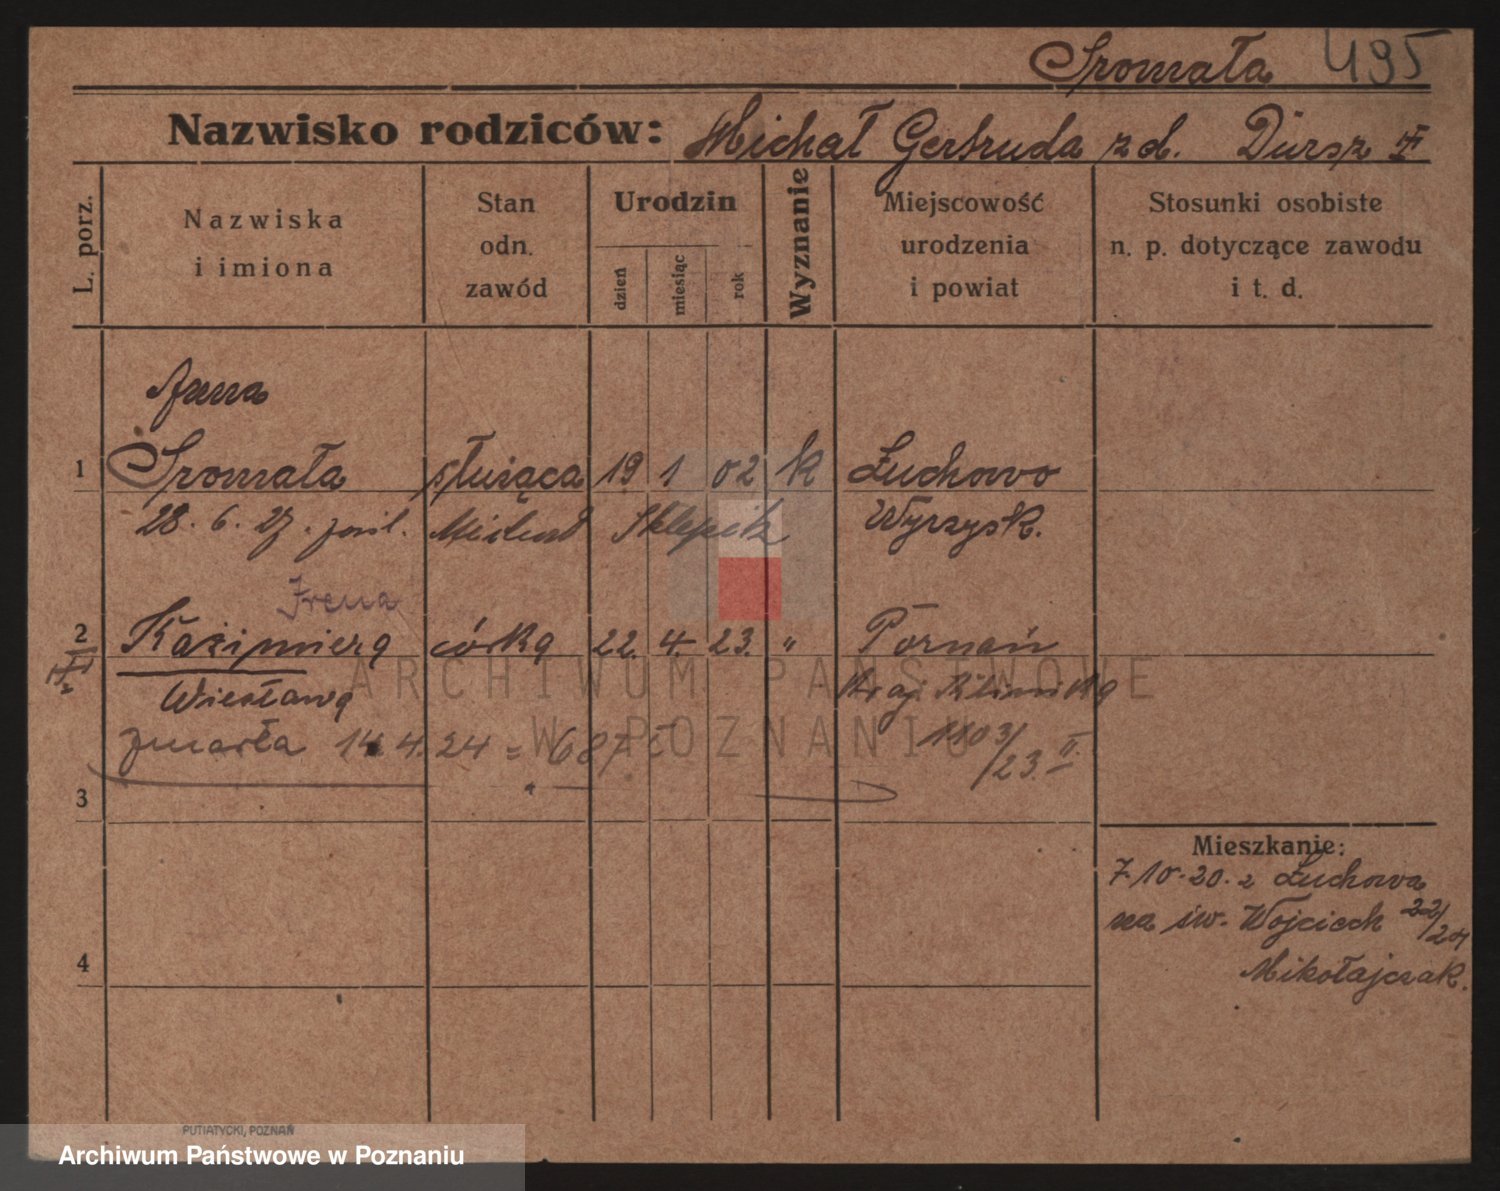 Sromała 495
Nazwisko rodziców: Michał Gertruda z d. Dursz
L. porz.
Nazwiska
i imiona
Stan
odn.
zawód
Urodzin
dzień
miesiąc
rok
Wyznanie
Miejscowość
urodzenia
i powiat
Stosunki osobiste
n. p. dotyczące zawodu
i t. d.
Anna
1 Sromała służąca 19 1 02 k Żuchowo
28. 6. 27. Sklepik Wyrzysk.
Irena
2 Kazimiera córka 22. 4. 23. " Poznań
Wiesława
zmarła 14. 4. 24 = 687
1803/23. II.
3
Mieszkanie:
7.10.20. z Żuchowa
na św. Wojciech 22/24
Mikołajczak.
4
ARCHIWUM PAŃSTWOWE
W POZNANIU
PUTIATYCKI, POZNAŃ
Archiwum Państwowe w Poznaniu